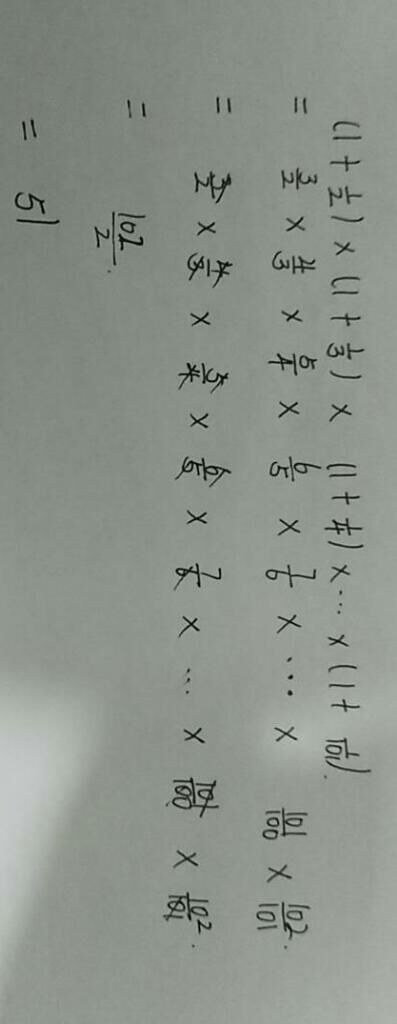 (1 + 1/2) × (1 + 1/3) × (1 + 1/4) × ... × (1 + 1/101).
= 3/2 × 4/3 × 5/4 × 6/5 × 7/6 × ... × 101/100 × 102/101.
= 3/2 × 4/3 × 5/4 × 6/5 × 7/6 × ... × 101/100 × 102/101.
= 102/2.
= 51